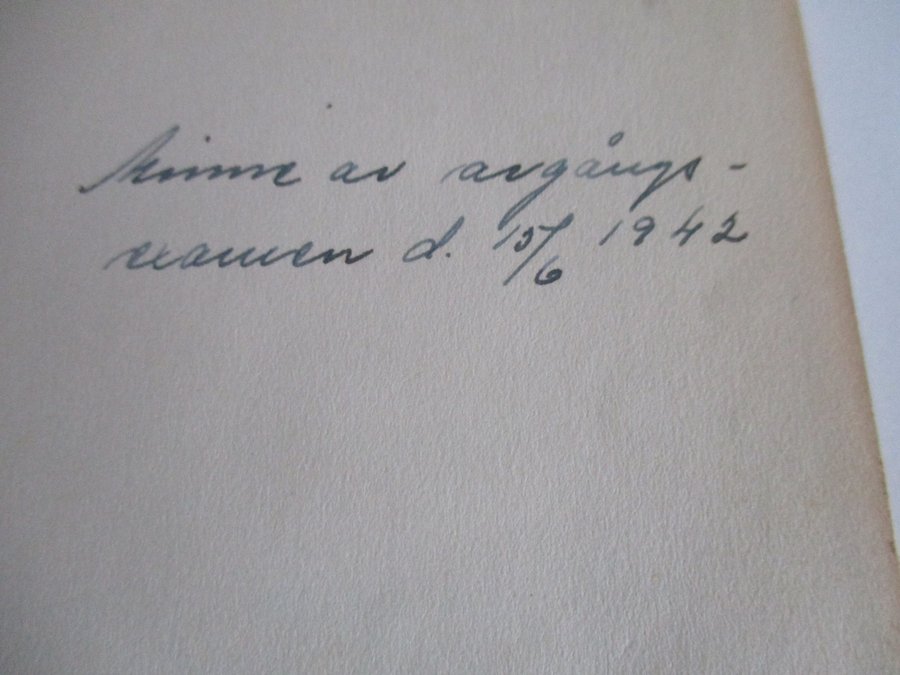 Minne av avgångs-
examen d. 15/6 1942